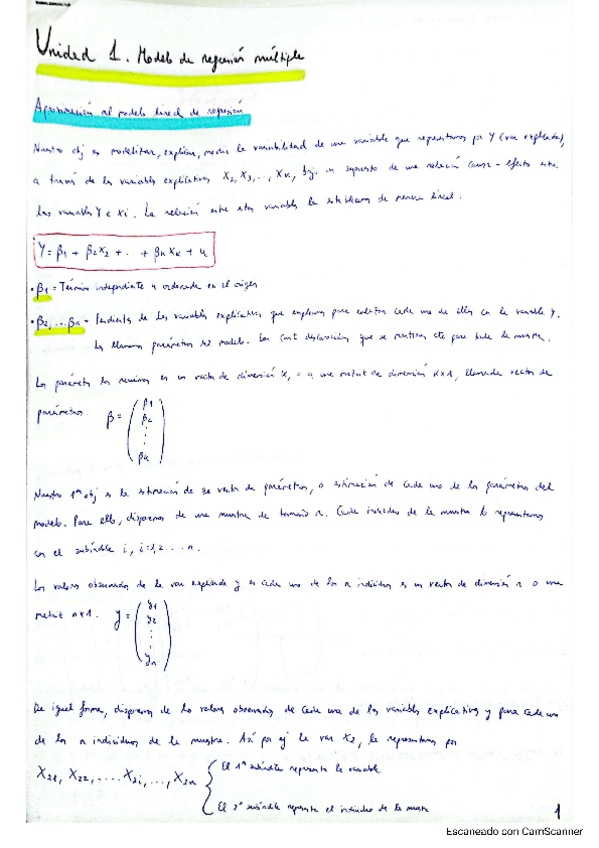 Unidad 1. Modelo de regresión múltiple
Aproximación al modelo lineal de regresión
Nuestro obj es modelizar, explicar, medir la variabilidad de una variable que representamos por Y (var explicada),
a través de las variables explicativas X2, X3, ..., XK, bajo un supuesto de una relación causa-efecto entre
las variables Y e Xi. La relación entre estas variables la establecemos de manera lineal.
Y = β1 + β2X2 + ... + βKXK + u
• β1 = Término independiente u ordenada en el origen
• β2, ... βK = Pendiente de las variables explicativas que explican para cada una de ellas en la variable Y.
Los llamamos parámetros del modelo. Son que se mantienen cte para toda la muestra.
Los parámetros los reunimos en un vector de dimensión K, o a una matriz de dimensión K×1, llamada vector de
parámetros. β = (β1 β2 ⋮ βK)
Nuestro 1er obj es la estimación de ese vector de parámetros, o estimación de cada uno de los parámetros del
modelo. Para ello, disponemos de una muestra de tamaño n. Cada individuo de la muestra lo representamos
con el subíndice i, i=1,2 .... n.
Los valores observados de la var explicada y en cada uno de los n individuos es un vector de dimensión n o una
matriz n×1. y = (y1 y2 ⋮ yn)
De igual forma, disponemos de los valores observados de cada una de las variables explicativas y para cada uno
de los n individuos de la muestra. Así por ej la var X2, la representamos por
X21, X22, .... X2i, ..., X2n
El 1er subíndice representa la variable
El 2º subíndice representa el individuo de la muestra
1
Escaneado con CamScanner